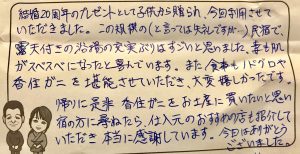 結婚20周年のプレゼントとして子供から贈られ、今回利用させて
いただきました。この規模の(と言っては失礼ですが…)民宿で、
露天付きの浴場の充実ぶりはすごいと思いました。妻も肌
がスベスベになったと喜んでいます。また、食事もノドグロや
香住ガニを堪能させていただき、大変嬉しかったです。
帰りに是非 香住ガニをお土産に買いたいと思い
宿の方に尋ねたら、仕入元のおすすめの店も紹介して
いただき 本当に感謝しています。今回はありがとう
ございました。